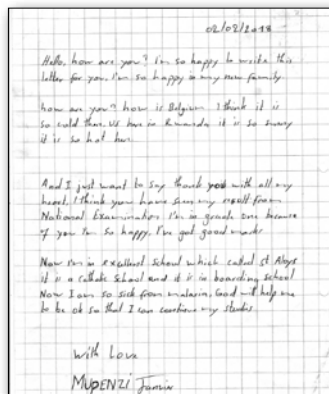 02/02/2018
Hello, how are you? I'm so happy to write this
letter for you. I'm so happy in my new family.
how are you? how is Belgium I think it is
so cold there. Us here in Rwanda it is so sunny
it is so hot here.
And I just want to say thank you with all my
heart. I think you have seen my result from
National Examination I'm in grade one because
of you I'm so happy. I've got good marks
Now I'm in excellent School which called St Aloys
it is a catholic School and it is in boarding school
Now I am so sick from malaria, God will help me
to be ok so that I can continue my studies
With Love
MUPENZI